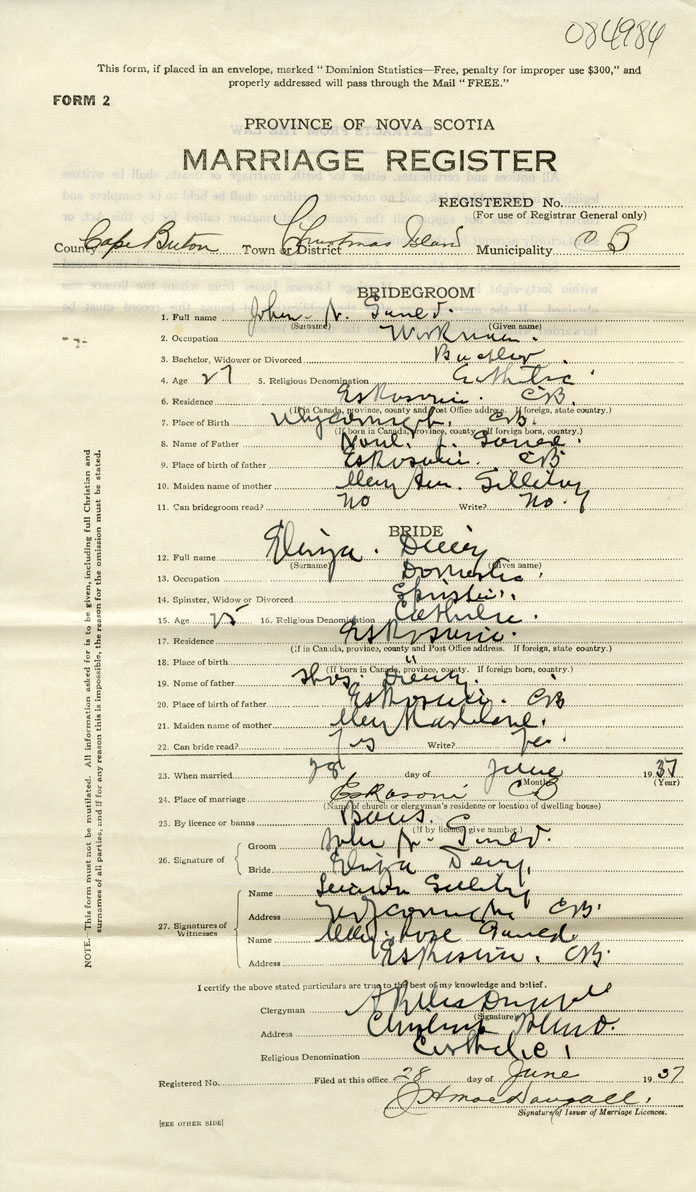 084984
This form, if placed in an envelope, marked "Dominion Statistics—Free, penalty for improper use $300," and
properly addressed will pass through the Mail "FREE."
FORM 2
PROVINCE OF NOVA SCOTIA
MARRIAGE REGISTER
REGISTERED No.
(For use of Registrar General only)
County Cape Breton Town or District Christmas Island Municipality C B
BRIDEGROOM
1. Full name John N. Gould.
(Surname) (Given name)
2. Occupation Workman.
3. Bachelor, Widower or Divorced Bachelor.
4. Age 27 5. Religious Denomination Catholic
6. Residence Eskasoni. C.B.
(If in Canada, province, county and Post Office address. If foreign, state country.)
7. Place of Birth Whycocomagh, C.B.
(If born in Canada, province, county. If foreign born, country.)
8. Name of Father
9. Place of birth of father Eskasoni. CB
10. Maiden name of mother Mary Ann.
11. Can bridegroom read? No Write? No.
BRIDE
12. Full name Eliza. Denny
(Surname) (Given name)
13. Occupation Domestic.
14. Spinster, Widow or Divorced Spinster.
15. Age 25 16. Religious Denomination Catholic.
17. Residence Eskasoni.
(If in Canada, province, county and Post Office address. If foreign, state country.)
18. Place of birth "
(If born in Canada, province, county. If foreign born, country.)
19. Name of father Thos. Denny.
20. Place of birth of father Eskasoni. CB
21. Maiden name of mother Mary
22. Can bride read? Yes Write? Yes.
23. When married 28 day of June 1937
(Month) (Year)
24. Place of marriage Eskasoni CB
(Name of church or clergyman's residence or location of dwelling house)
25. By licence or banns Banns.
(If by licence give number.)
26. Signature of
Groom John N. Gould.
Bride Eliza Denny,
27. Signatures of Witnesses
Name
Address Whycocomagh CB.
Name Mary Rose Gould
Address Eskasoni. CB.
I certify the above stated particulars are true to the best of my knowledge and belief.
Clergyman
(Signature)
Address Christmas Island.
Religious Denomination Catholic
Registered No. Filed at this office 28 day of June 1937
MacDougall.
Signature of Issuer of Marriage Licences.
[SEE OTHER SIDE]
NOTE. This form must not be mutilated. All information asked for is to be given, including full Christian and
surnames of all parties, and if for any reason this is impossible, the reason for the omission must be stated.